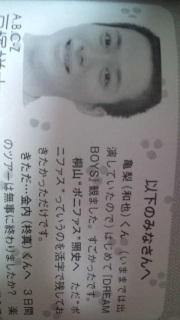 A.B.C-Z
以下のみなさんへ
亀梨(和也)くん。(いままでは出
演していたので)はじめて「DREAM
BOYS」観ました。すごかったです。
桐山“ボニファス”照史へ ただ“ボ
ニファス”っていうのを活字で残してお
きたかっただけです。
きただ…金内(柊真)くんへ 3日間
のツアーは無事に終わりましたか? 楽